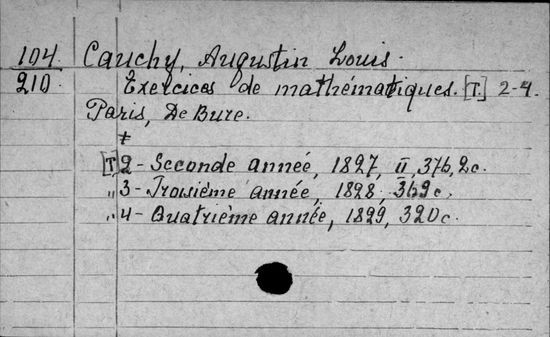 104 Cauchy, Augustin Louis.
210 Exercices de mathématiques. [T.] 2-4.
Paris, De Bure.
[T.] 2 - Seconde année, 1827, II, 376, 2c.
„ 3 - Troisième année, 1828, 369c.
„ 4 - Quatrième année, 1829, 320c.